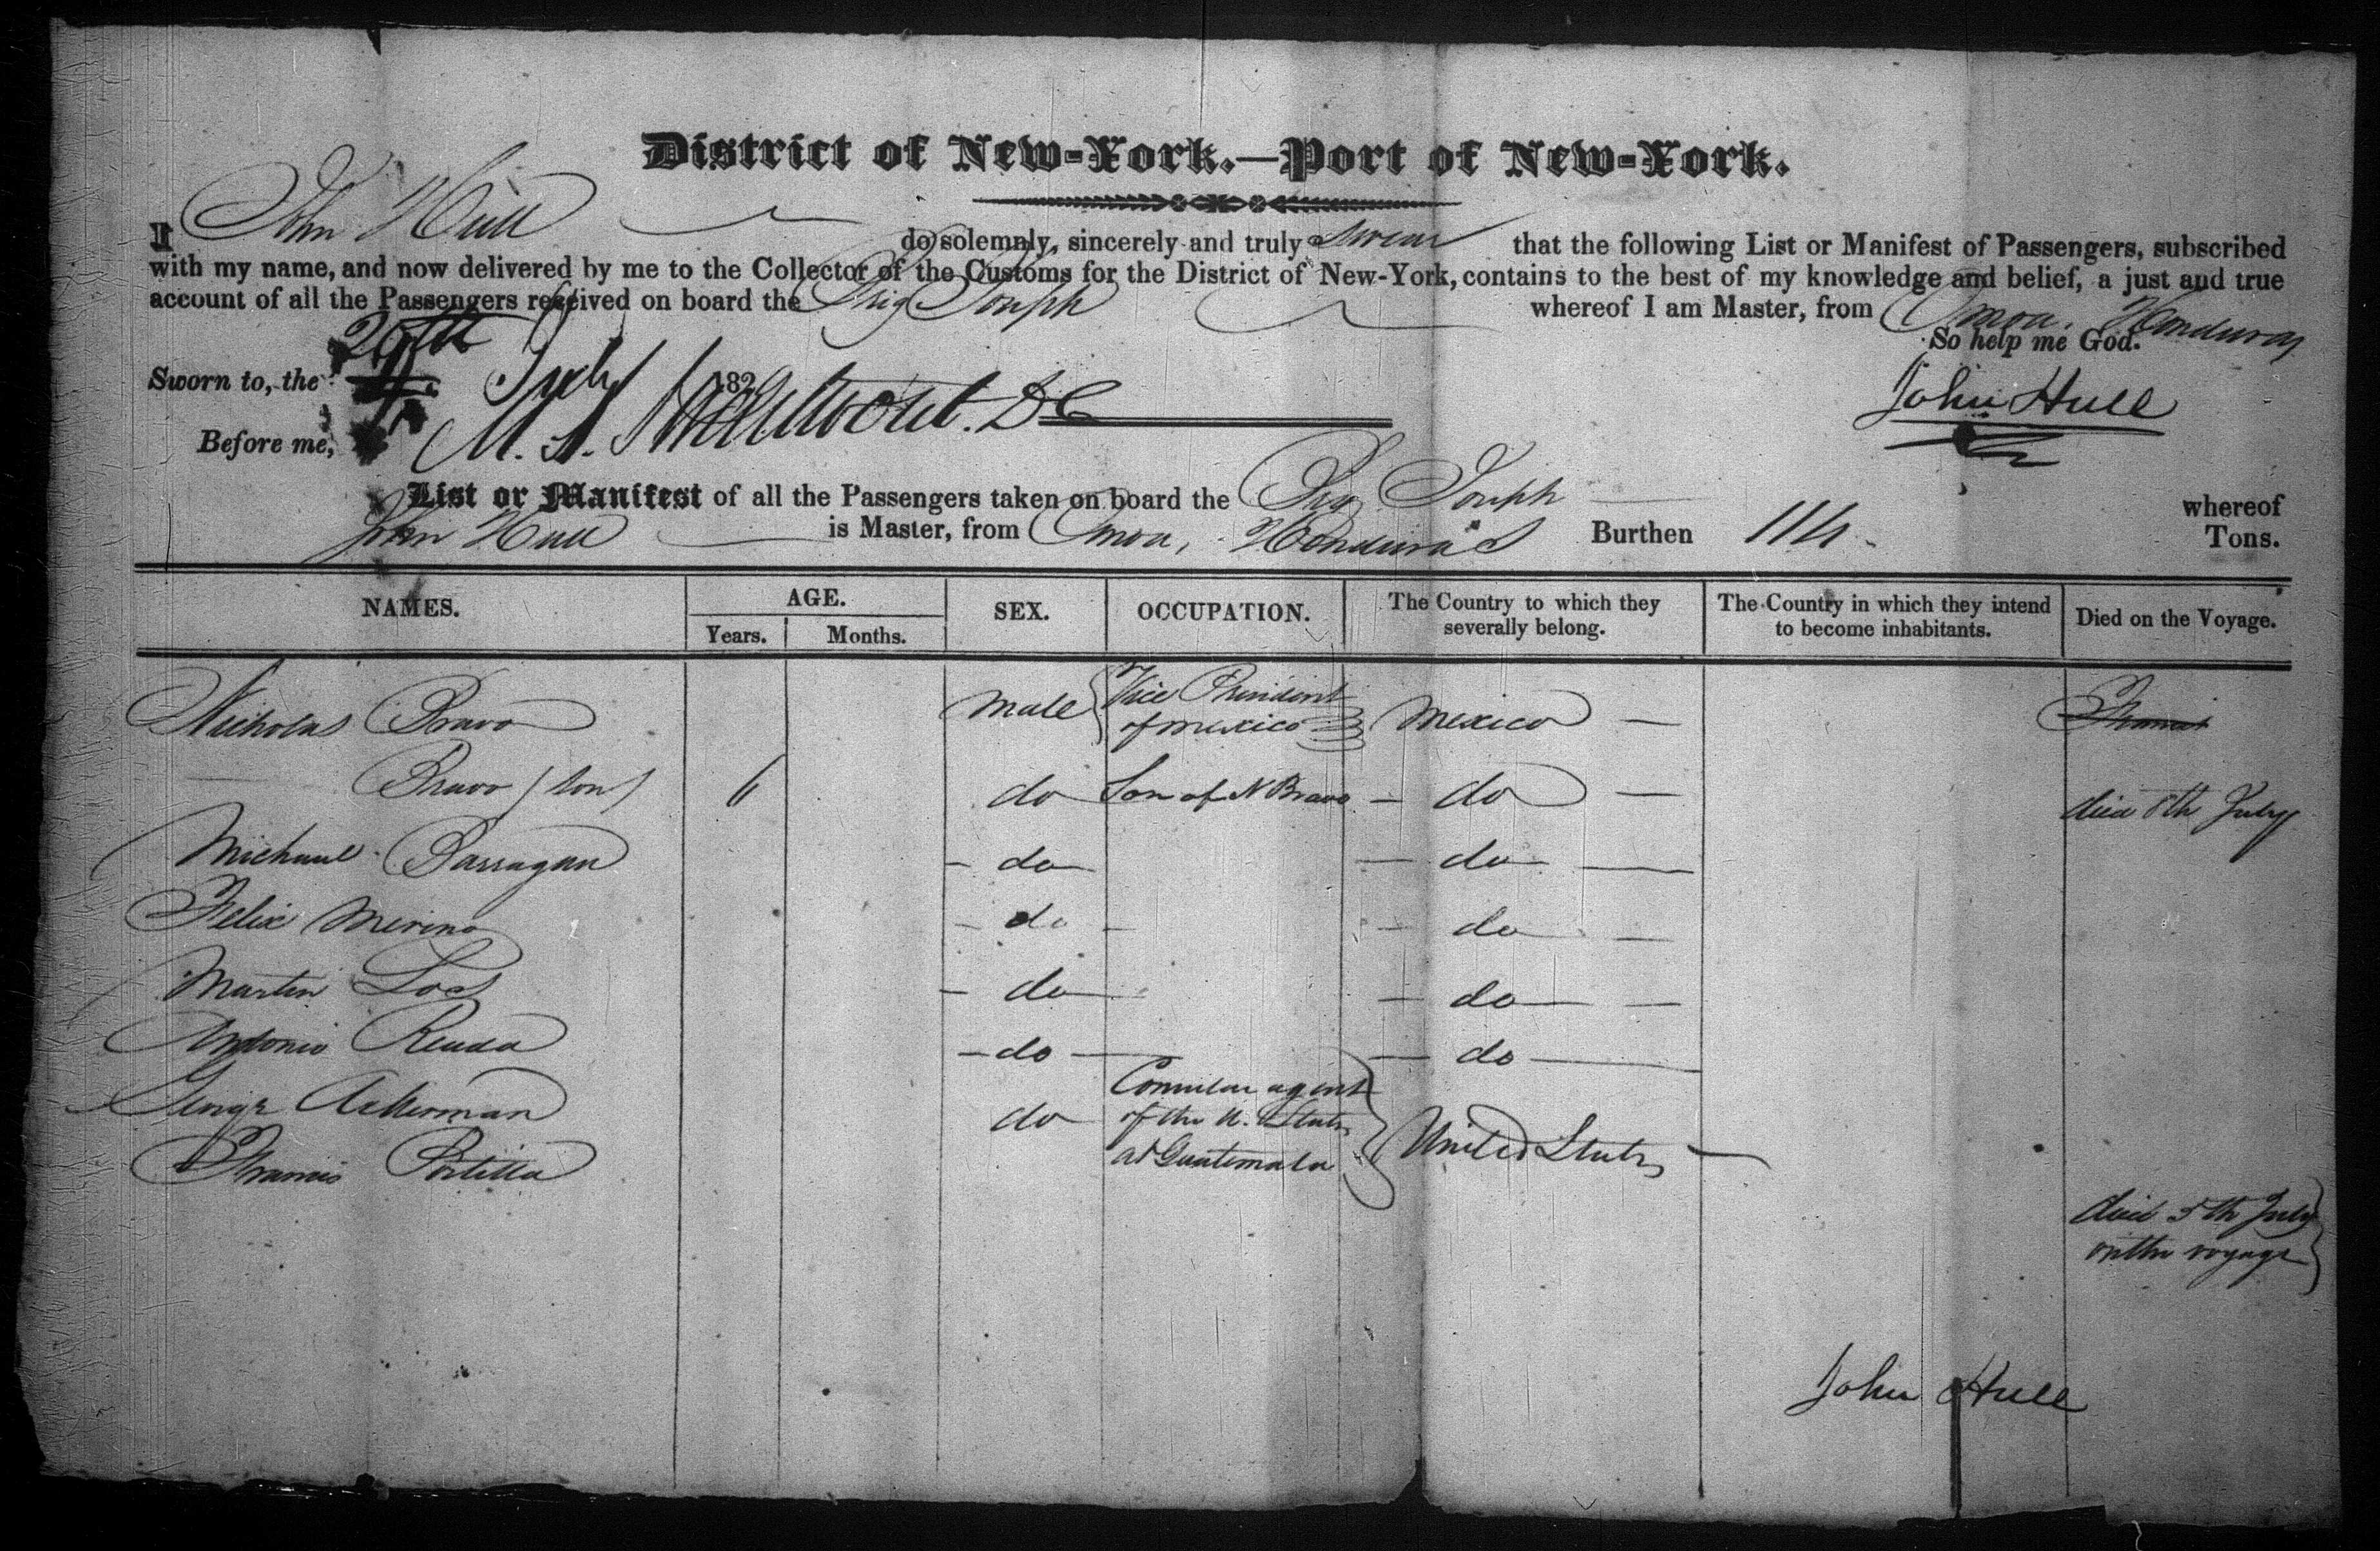 District of New-York.—Port of New-York.
I John Hull do solemnly, sincerely and truly swear that the following List or Manifest of Passengers, subscribed
with my name, and now delivered by me to the Collector of the Customs for the District of New-York, contains to the best of my knowledge and belief, a just and true
account of all the Passengers received on board the Brig Joseph whereof I am Master, from Omoa, Honduras
So help me God.
Sworn to, the 20th July 182
John Hull
Before me,
List or Manifest of all the Passengers taken on board the Brig Joseph whereof
John Hull is Master, from Omoa, Honduras Burthen 114 Tons.
NAMES. AGE. SEX. OCCUPATION. The Country to which they severally belong. The Country in which they intend to become inhabitants. Died on the Voyage.
Years. Months.
Nicholas Bravo Male Vice President of Mexico Mexico — Francis
Bravo (son) 6 do Son of N Bravo — do — died 8th July
Michael Barragan — do — do —
Felix Merino — do — — do —
Martin Los — do — — do —
Antonio Renda — do — — do —
George Ackerman do Consular agent of the U. States at Guatemala United States —
Francis Portilla died 5th July on the voyage
John Hull